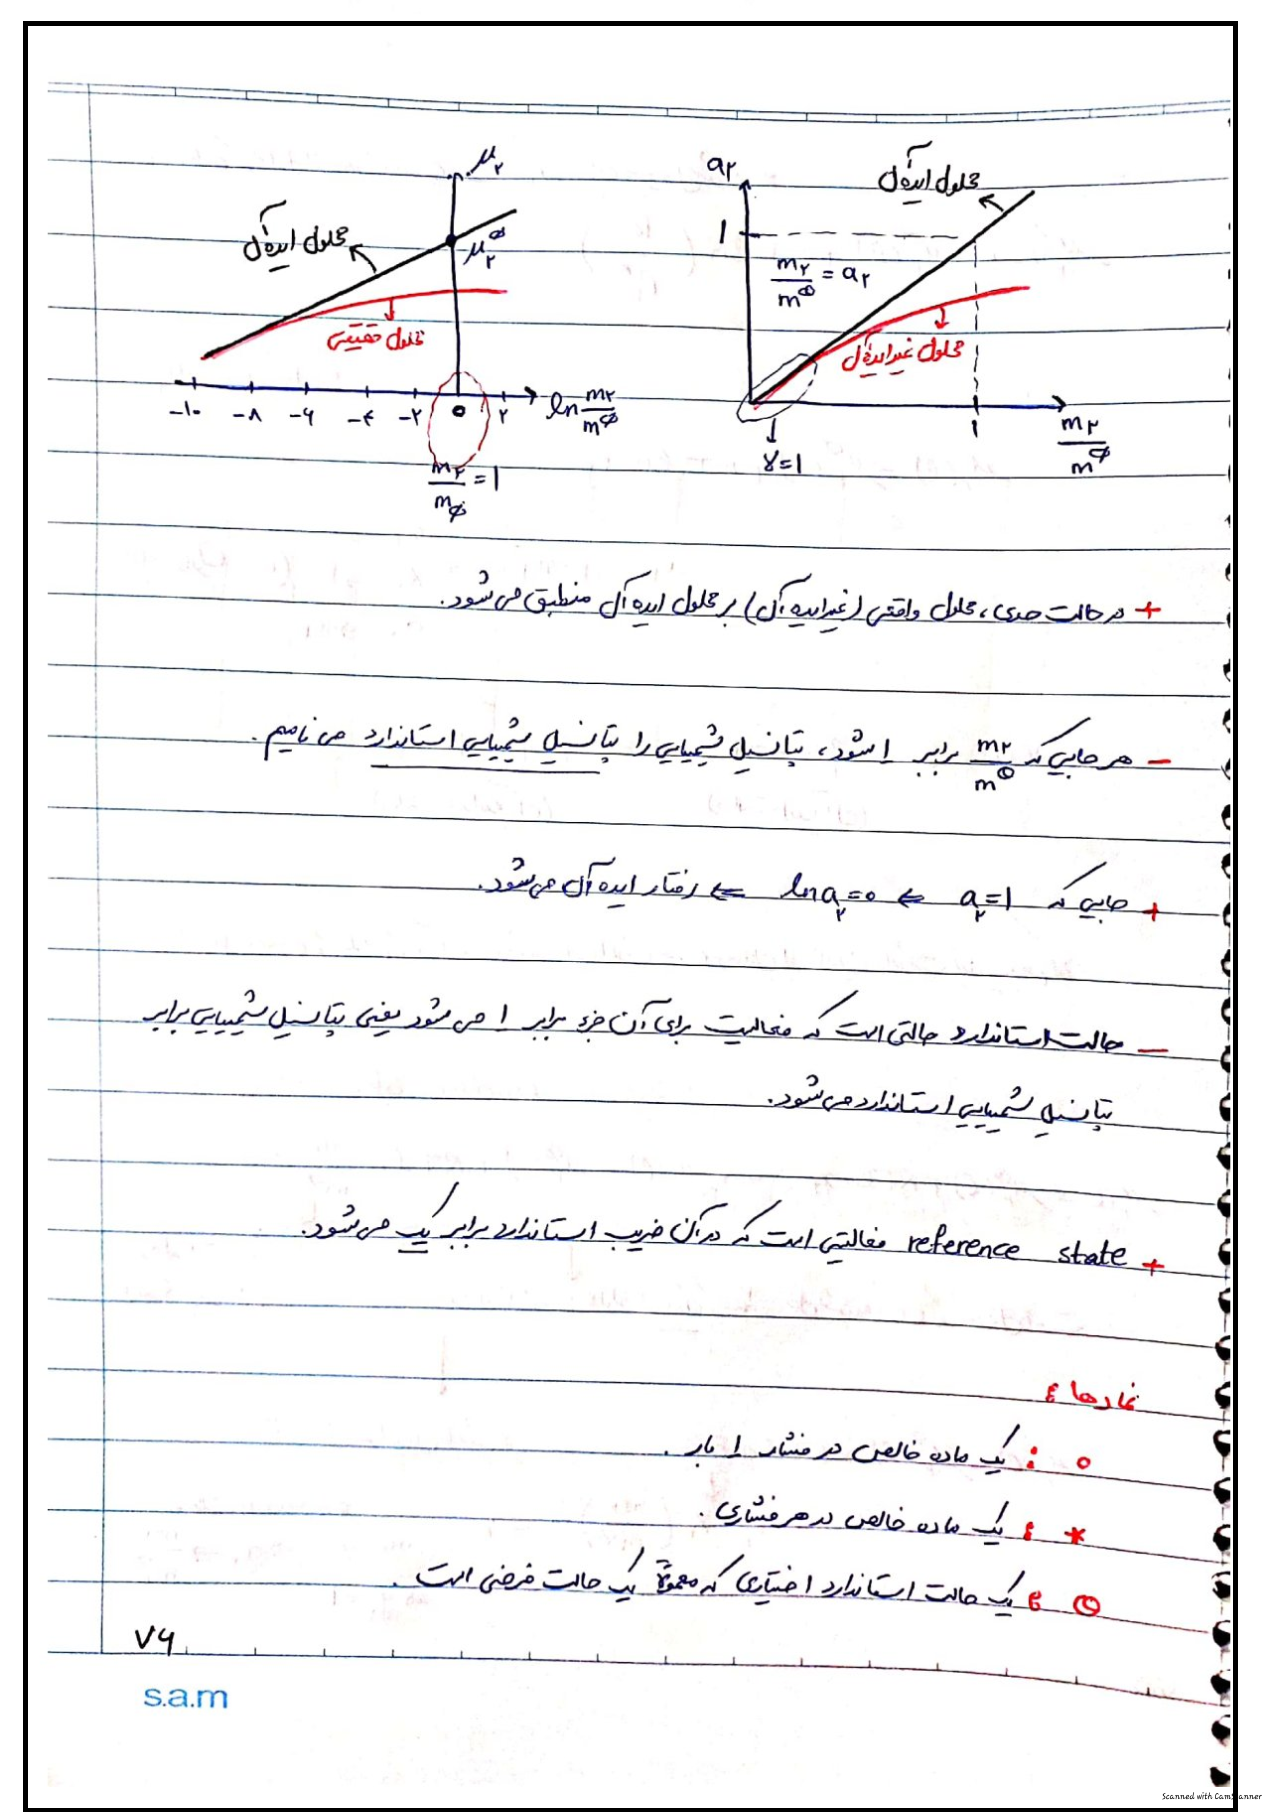 μ₂
محلول ایده‌آل
μ₂⦵
محلول حقیقی
-۱۰ -۸ -۶ -۴ -۲ ۰ ۲ ln m₂/m⦵
m₂/m⦵ = ۱
a₂
محلول ایده‌آل
۱
m₂/m⦵ = a₂
محلول غیر ایده‌آل
۱ m₂/m⦵
γ=۱
+ در حالت حدی، محلول واقعی (غیر ایده آل) بر محلول ایده آل منطبق می‌شود.
- هر جایی که m₂/m⦵ برابر ۱ شود، پتانسیل شیمیایی را پتانسیل شیمیایی استاندارد می نامیم.
+ جایی که a₂=۱ ⇐ ln a₂=۰ ⇐ رفتار ایده آل می‌شود.
- حالت استاندارد حالتی است که فعالیت برای آن جزء برابر ۱ می شود یعنی پتانسیل شیمیایی برابر
پتانسیل شیمیایی استاندارد می‌شود.
+ reference state فعالیتی است که در آن ضریب استاندارد برابر یک می شود.
نمادها :
० : یک ماده خالص در فشار ۱ بار.
* : یک ماده خالص در هر فشاری.
⦵ : یک حالت استاندارد اختیاری که معمولاً یک حالت فرضی است.
۷۶
s.a.m
Scanned with CamScanner